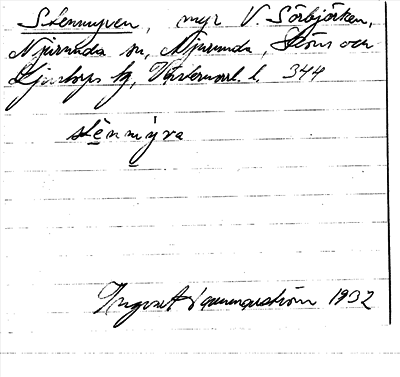 Stenmyren, myr V. Sörbjörken,
Njurunda sn, Njurunda, Sköns och
Ljustorps tg, Västernorrl. l. 344
stènmýra
Ingvar 1932